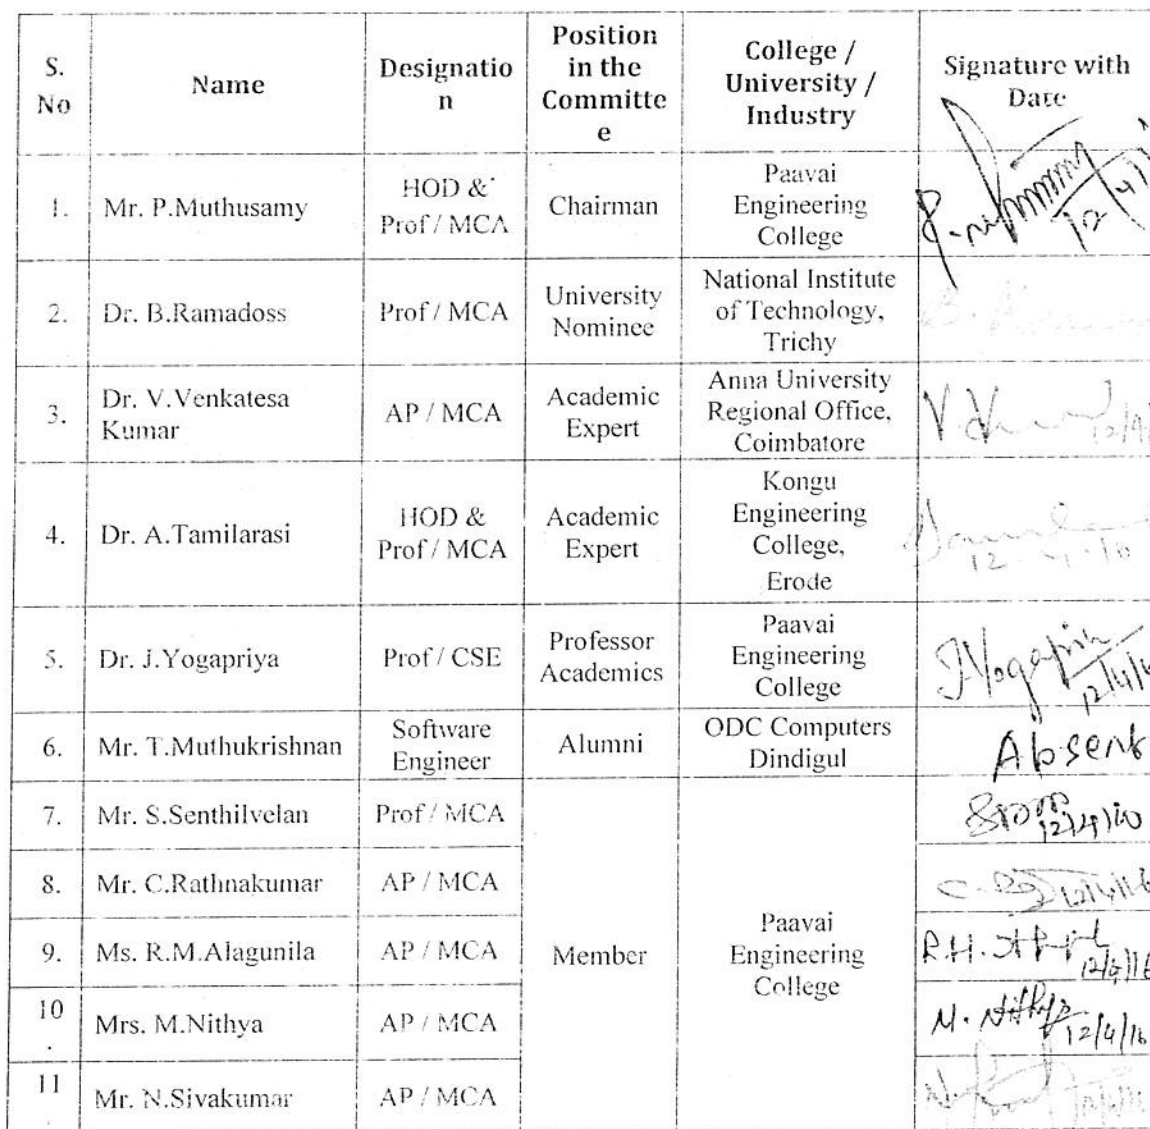 S. No
Name
Designatio
n
Position
in the
Committe
e
College /
University /
Industry
Signature with
Date
1.
Mr. P.Muthusamy
HOD &
Prof / MCA
Chairman
Paavai
Engineering
College
2.
Dr. B.Ramadoss
Prof / MCA
University
Nominee
National Institute
of Technology,
Trichy
3.
Dr. V.Venkatesa
Kumar
AP / MCA
Academic
Expert
Anna University
Regional Office,
Coimbatore
4.
Dr. A.Tamilarasi
HOD &
Prof / MCA
Academic
Expert
Kongu
Engineering
College,
Erode
5.
Dr. J.Yogapriya
Prof / CSE
Professor
Academics
Paavai
Engineering
College
J.Yogapriya
6.
Mr. T.Muthukrishnan
Software
Engineer
Alumni
ODC Computers
Dindigul
Absent
7.
Mr. S.Senthilvelan
Prof / MCA
8.
Mr. C.Rathnakumar
AP / MCA
9.
Ms. R.M.Alagunila
AP / MCA
Member
Paavai
Engineering
College
12/4/16
10
.
Mrs. M.Nithya
AP / MCA
M. Nithya
12/4/16
11
.
Mr. N.Sivakumar
AP / MCA